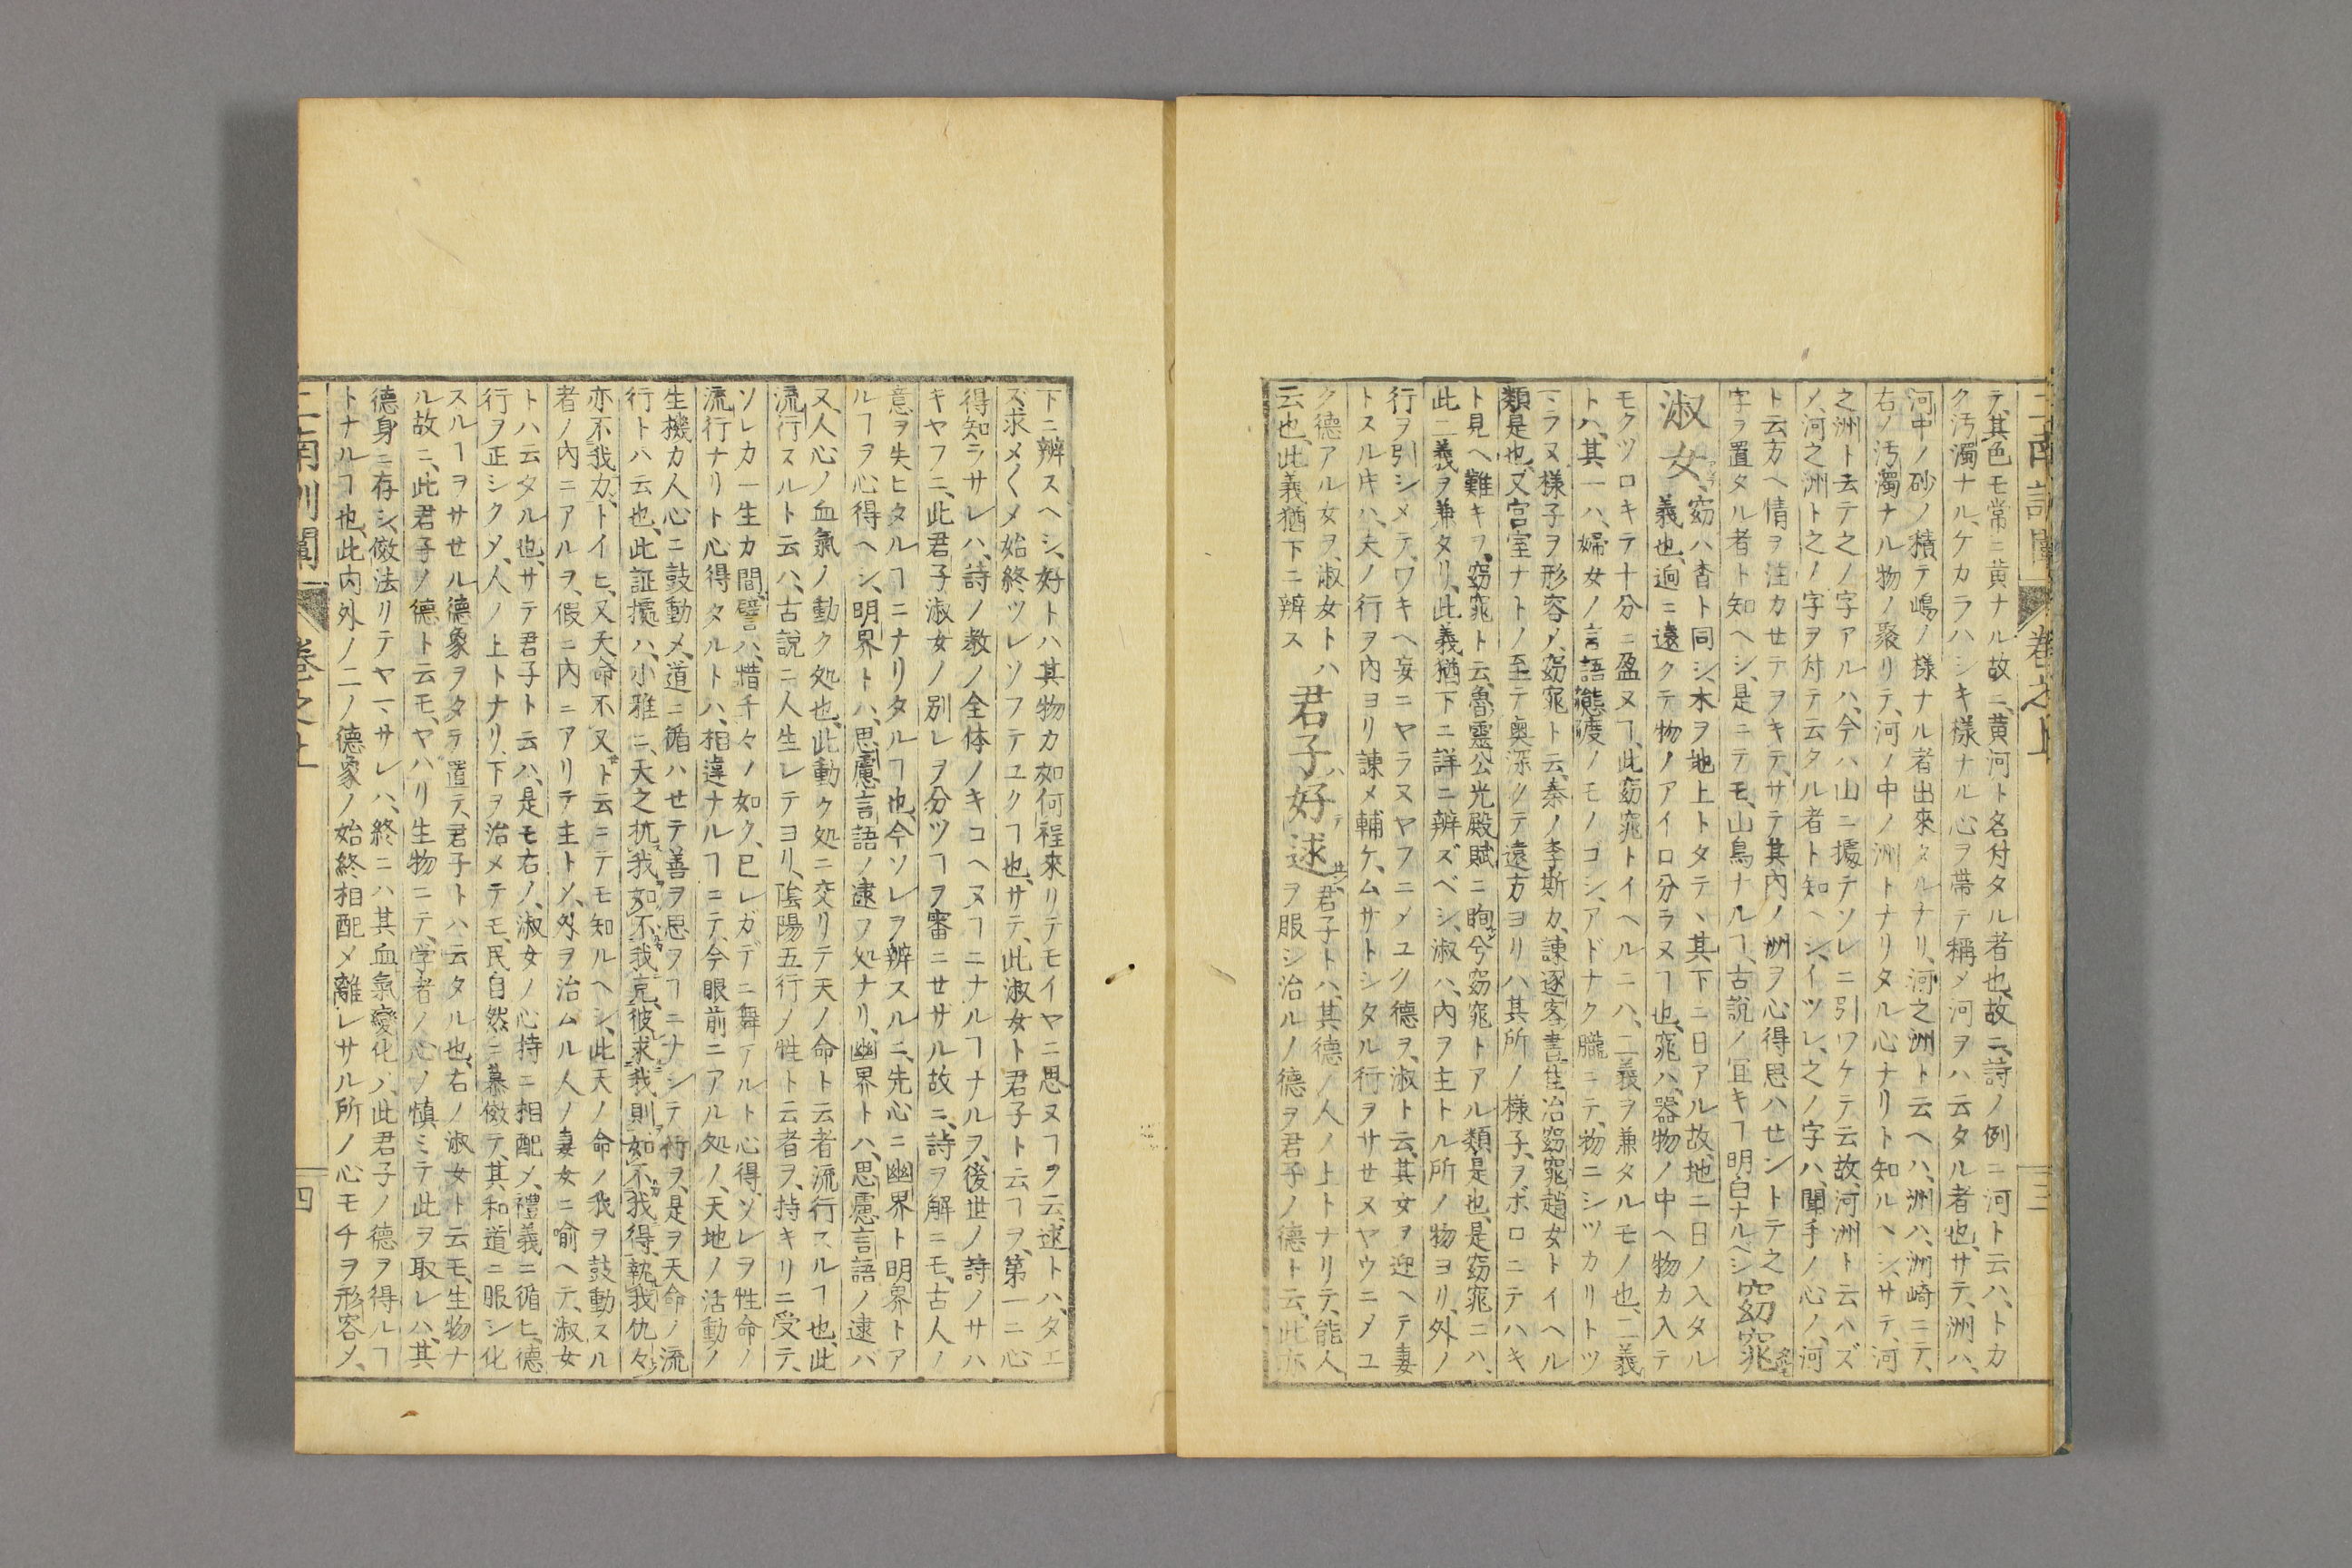 二南訓闡 卷之上 三
テ、其色モ常ニ黄ナル故ニ、黄河ト名付タル者也、故ニ、詩ノ例ニ河ト云ハ、トカ
ク汚濁ナル、ケカラハシキ様ナル心ヲ帯テ稱メ河ヲハ云タル者也、サテ、洲ハ、
河中ノ砂ノ積テ嶋ノ様ナル者出來タルナリ、河之洲ト云ヘハ、洲ハ、洲崎ニテ、
右ノ汚濁ナル物ノ聚リテ、河ノ中ノ洲トナリタル心ナリト知ルヘシ、サテ、河
之洲ト云テ之ノ字アルハ、今ハ山ニ據テソレニ引ワケテ云故、河洲ト云ハズ
ノ、河之洲ト之ノ字ヲ付テ云タル者ト知ヘシ、イツレ、之ノ字ハ、聞手ノ心ノ、河
ト云方ヘ情ヲ注カセテヲキテ、サテ其内ノ洲ヲ心得思ハセントテ之
字ヲ置タル者ト知ヘシ、是ニテモ、山鳥ナルヿ、古説ノ宜キヿ明白ナルベシ 窈窕
淑女、窈ハ杳ト同シ、木ヲ地上トタテヽ其下ニ日アル故、地ニ日ノ入タル
義也、逈ニ遠クテ物ノアイロ分ラヌヿ也、窕ハ、器物ノ中ヘ物カ入テ
モクツロキテ十分ニ盈ヌヿ、此窈窕トイヘルニハ、二義ヲ兼タルモノ也、二義
トハ、其一ハ、婦女ノ言語態度ノモノゴシ、アドナク朧ニテ、物ニシツカリトツ
マラヌ様子ヲ形容ノ、窈窕ト云、秦ノ李斯カ、諫逐客書佳冶窈窕趙女トイヘル
類是也、又宮室ナトノ至テ奥深クテ遠方ヨリハ其所ノ様子、ヲボロニテハキ
ト見ヘ難キヲ、窈窕ト云、魯靈公光殿賦ニ眴兮窈窕トアル類是也、是窈窕ニハ、
此二義ヲ兼タリ、此義猶下ニ詳ニ辨ズベシ、淑ハ、内ヲ主トル所ノ物ヨリ、外ノ
行ヲ引シメテ、ワキヘ妄ニヤラヌヤフニメユク德ヲ、淑ト云、其女ヲ迎ヘテ妻
トスル寸ハ、夫ノ行ヲ内ヨリ諫メ輔ケ、ムサトシタル行ヲサセヌヤウニメユ
ク德アル女ヲ、淑女トハ 君子好逑 君子トハ、其德ノ人ノ上トナリテ、能人
云也、此義猶下ニ辨ス ヲ服シ治ルノ德ヲ君子ノ德ト云、此亦
下ニ辨スヘシ、好トハ其物カ如何程來リテモイヤニ思ヌヿヲ云、逑トハ、タエ
ズ求メ〳〵メ始終ツレソフテユクヿ也、サテ、此淑女ト君子ト云ヿヲ、第一ニ心
得知ラサレハ、詩ノ教ノ全体ノキコヘヌヿニナルヿナルヲ、後世ノ詩ノサハ
キヤフニ、此君子淑女ノ別レヲ分ツヿヲ審ニセサル故ニ、詩ヲ解ニモ、古人ノ
意ヲ失ヒタルヿニナリタルヿ也、今ソレヲ辨スルニ、先心ニ幽界ト明界トア
ルヿヲ心得ヘシ、明界トハ、思慮言語ノ逮フ処ナリ、幽界トハ、思慮言語ノ逮バ
又、人心ノ血氣ノ動ク処也、此動ク処ニ交リテ天ノ命ト云者流行スルヿ也、此
流行スルト云ハ、古説ニ人生レテヨリ、陰陽五行ノ性ト云者ヲ、持キリニ受テ、
ソレカ一生カ間、譬ハ、惜千々ノ如ク、已レガデニ舞アルト心得、ソレヲ性命ノ
流行ナリト心得タルトハ、相違ナルヿニテ、今眼前ニアル処ノ、天地ノ活動ノ
生機カ人心ニ鼓動メ、道ニ循ハセテ善ヲ思フヿニナシテ行ヲ、是ヲ天命ノ流
行トハ云也、此証據ハ、小雅ニ、天之扤我、如不我克、彼求我則、如不我得、執我仇々
亦不我力、トイヒ、又天命不又、ト云ニテモ知ルヘシ、此天ノ命ノ我ヲ鼓動スル
者ノ内ニアルヲ、假ニ内ニアリテ主トメ、外ヲ治ムル人ノ妻女ニ喩ヘテ、淑女
トハ云タル也、サテ君子ト云ハ、是モ右ノ、淑女ノ心持ニ相配メ、禮義ニ循ヒ、德
行ヲ正シクメ、人ノ上トナリ、下ヲ治メテモ、民自然ニ慕傚テ、其和道ニ服シ化
スルヿヲサセル德象ヲタテ置テ、君子トハ云タル也、右ノ淑女ト云モ、生物ナ
ル故ニ、此君子ノ德ト云モ、ヤハリ生物ニテ、学者ノ心ノ慎ミテ此ヲ取レハ、其
德身ニ存シ、傚法リテヤマサレハ、終ニハ其血氣變化ノ、此君子ノ德ヲ得ルヿ
トナルヿ也、此内外ノ二ノ德象ノ始終相配メ離レサル所ノ心モチヲ形容メ、
二南訓闡 卷之上 四